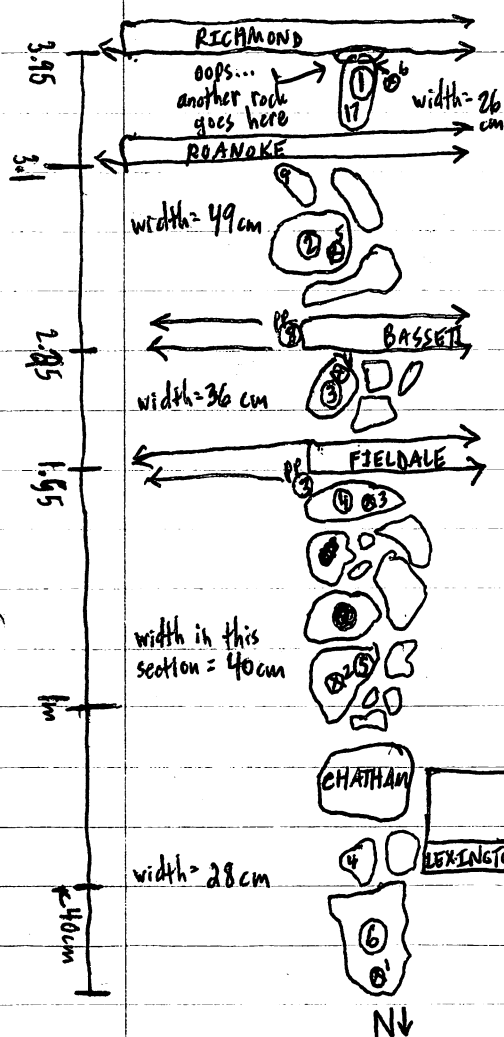 RICHMOND
3.95
oops...
another rock
goes here
1
6
17
width= 26
cm
ROANOKE
3.1
9
width= 49cm
2
5
PP
BASSETT
width=36 cm
3
FIELDALE
PP
3
4
3
width in this
section = 40cm
2
5
1m
CHATHAM
4
LEXINGTO
width= 28cm
40cm
6
1
N↓